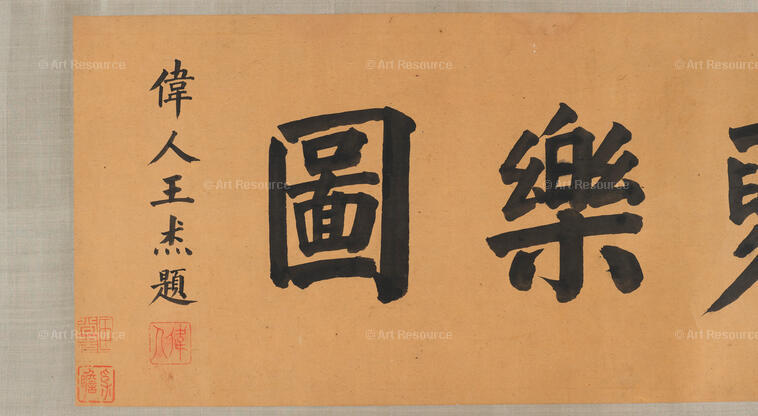 樂圖
偉人王杰題
偉人
© Art Resource
© Art Resource
© Art Resource
© Art Resource
© Art Resource
© Art Resource
© Art Resource
© Art Resource